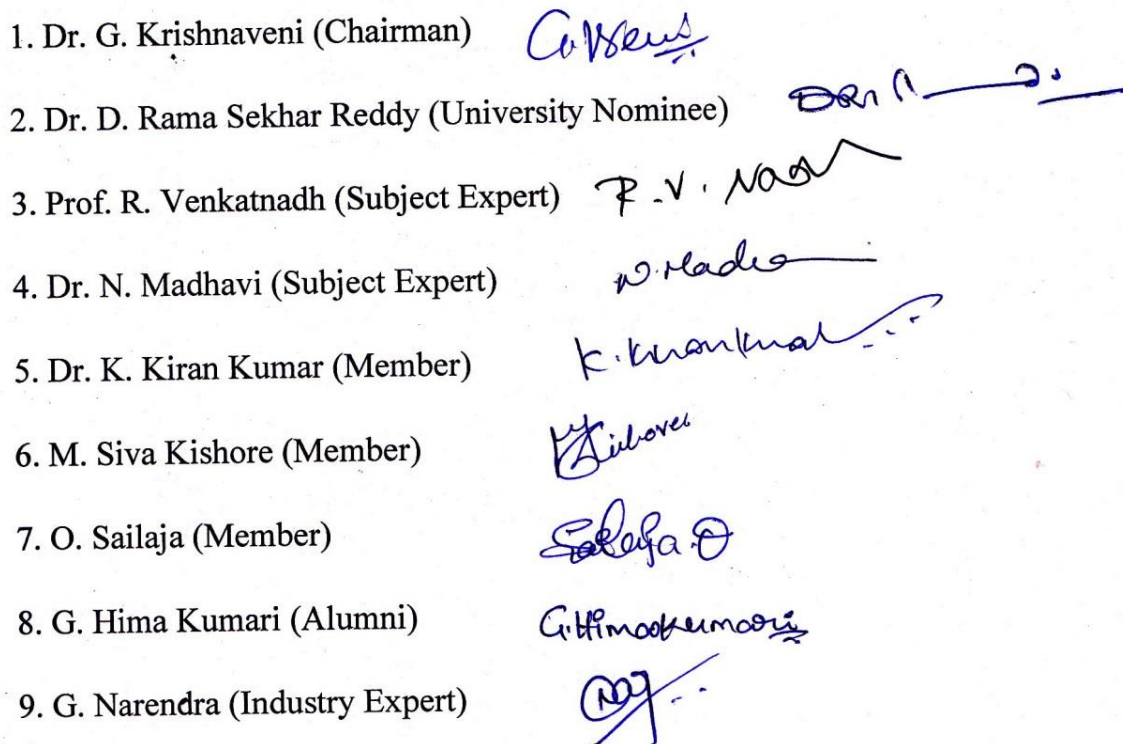 1. Dr. G. Krishnaveni (Chairman)
2. Dr. D. Rama Sekhar Reddy (University Nominee)
3. Prof. R. Venkatnadh (Subject Expert) R.V.
4. Dr. N. Madhavi (Subject Expert)
5. Dr. K. Kiran Kumar (Member)
6. M. Siva Kishore (Member)
7. O. Sailaja (Member) Sailaja.O
8. G. Hima Kumari (Alumni) G.Himakumari
9. G. Narendra (Industry Expert)